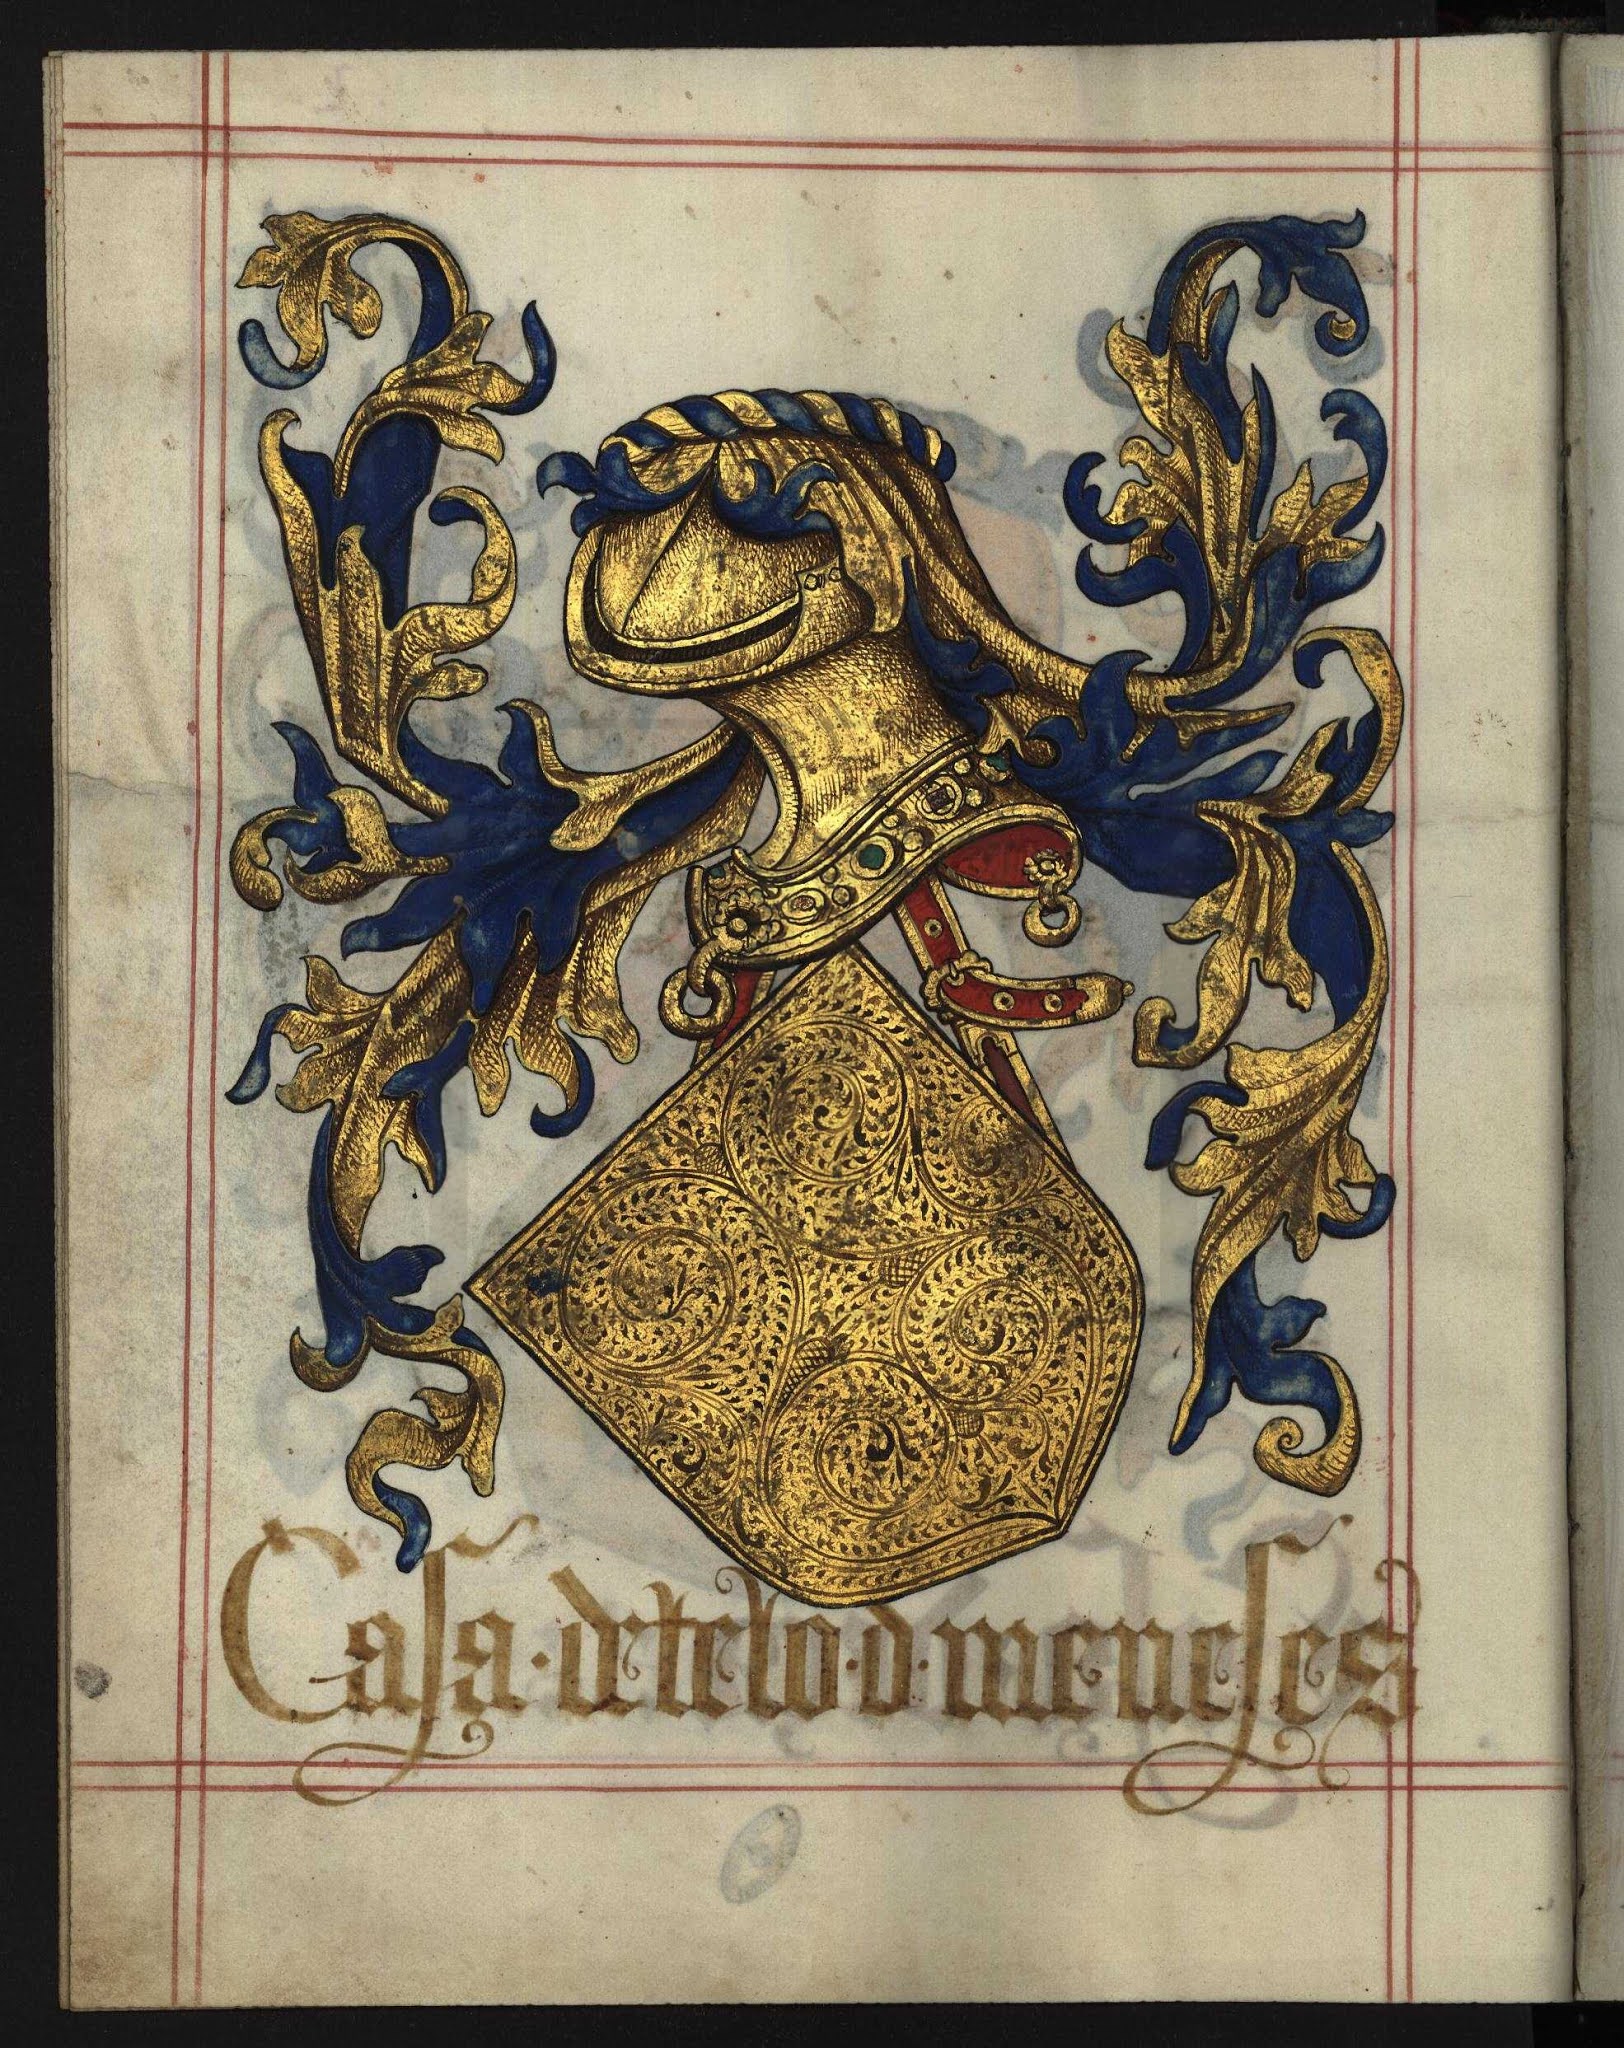 Casa · de telo · d · meneses